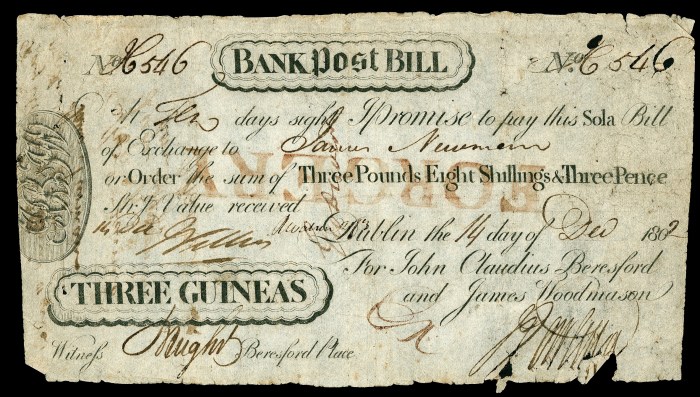 No. 546 BANK Post BILL No. 6546
At Ten days sight I promise to pay this Sola Bill
of Exchange to James Newman
or Order the sum of Three Pounds Eight Shillings & Three Pence
Str.g Value received
Dublin the 14 day of Dec 1802
For John Claudius Beresford
and James Woodmason
THREE GUINEAS
Witness Beresford Place
FORGERY